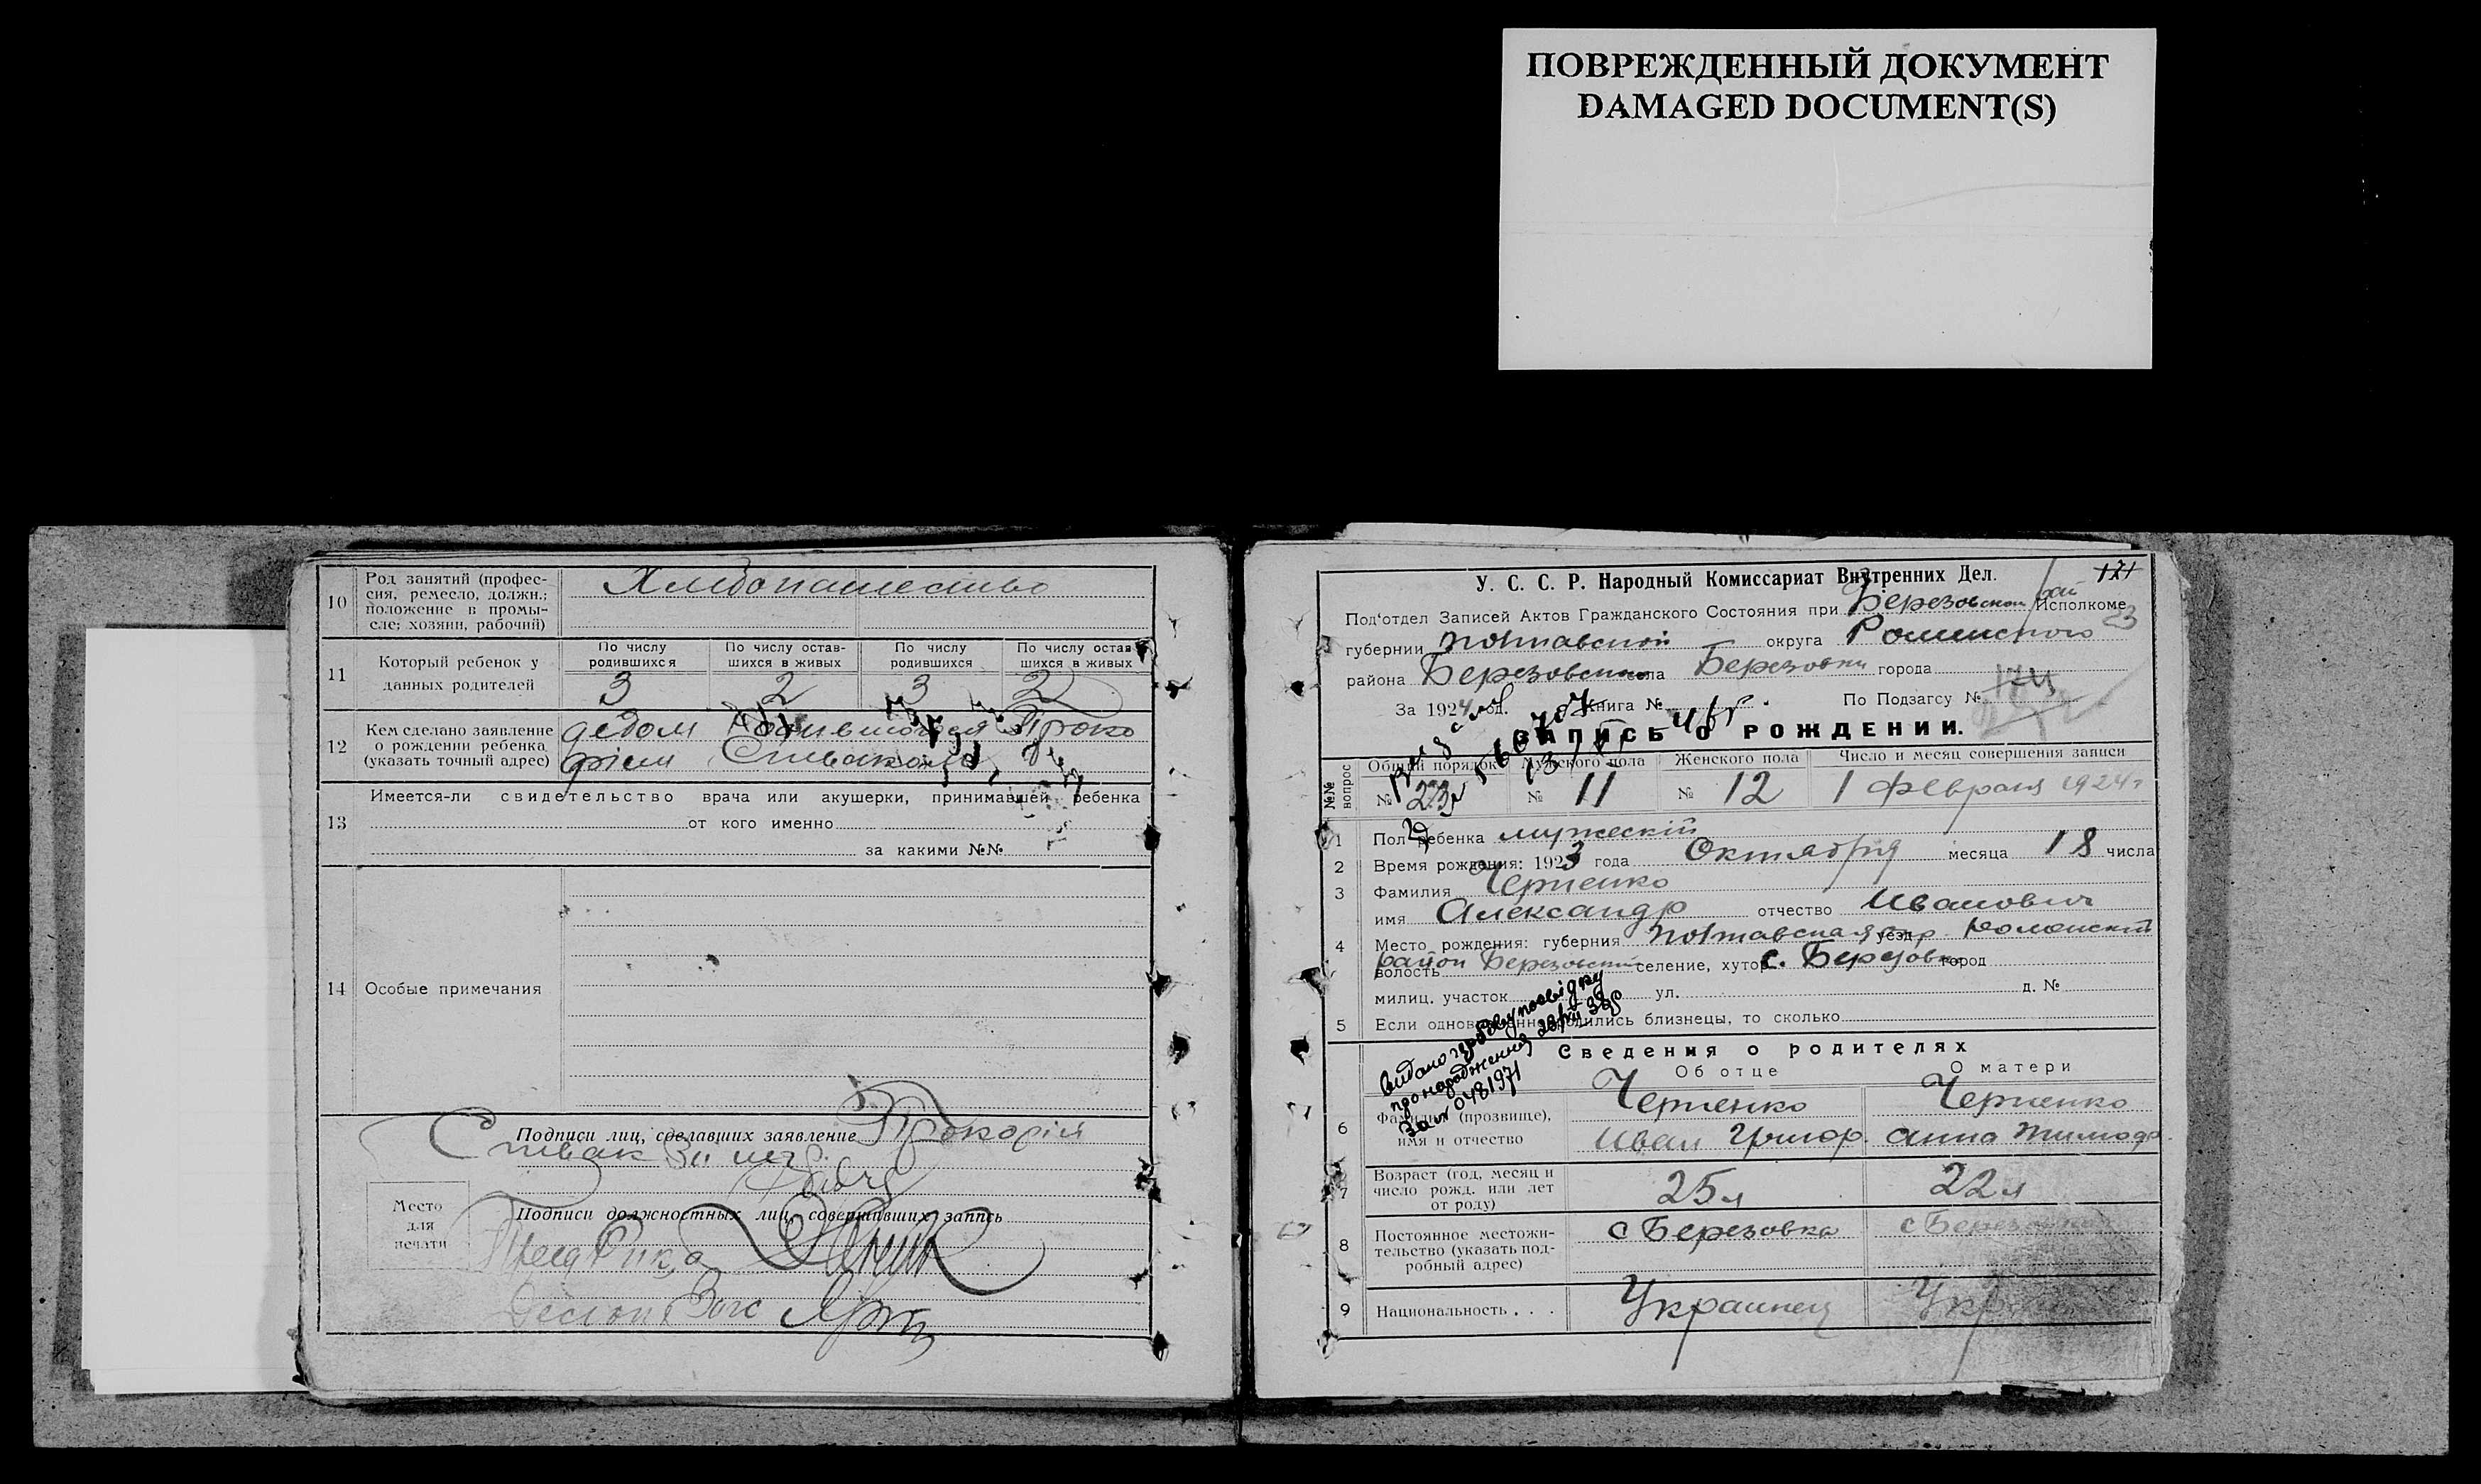 ПОВРЕЖДЕННЫЙ ДОКУМЕНТ
DAMAGED DOCUMENT(S)
10 Род занятий (профес-
сия, ремесло, должн.;
положение в промы-
сле; хозяин, рабочий)
Хлебопашество
11 Который ребенок у
данных родителей
По числу родившихся
По числу остав-шихся в живых
По числу родившихся
По числу остав шихся в живых
3 2 3 2
12 Кем сделано заявление
о рождении ребенка
(указать точный адрес)
дедом Проко
фіем Спваком
13 Имеется-ли свидетельство врача или акушерки, принимавшей ребенка
от кого именно
за какими №№
14 Особые примечания
Подписи лиц, сделавших заявление Прокофій
Спвак
Место
для
печати
Подписи должностных лиц, совершивших запись
Пред Рика
Загс
У. С. С. Р. Народный Комиссариат Внутренних Дел.
121
Под'отдел Записей Актов Гражданского Состояния при Березовском Рай Исполкоме
23
губернии Полтавской округа Роменского
района Березовского села Березовки города
За 1924 год. Книга № По Подзагсу №
ЗАПИСЬ О РОЖДЕНИИ.
№№ вопрос
Общий порядок Мужского пола Женского пола Число и месяц совершения записи
№ 23 № 11 № 12 1 февраля 1924 г
1 Пол ребенка мужескій
2 Время рождения: 1923 года Октября месяца 18 числа
3 Фамилия Черненко
имя Александр отчество Иванович
4 Место рождения: губерния Полтавская уезд Роменский
волость район Березовский селение, хутор с. Березовка город
милиц. участок ул. д. №
5 Если одновременно родились близнецы, то сколько
Видано
про народження
за № 0481971
Сведения о родителях
Об отце О матери
6 Фамилия (прозвище),
имя и отчество
Черненко Черненко
Иван Григор. Анна Тимоф.
7 Возраст (год, месяц и
число рожд. или лет
от роду)
25 л 22 л
8 Постоянное местожи-
тельство (указать под-
робный адрес)
с Березовка с Березовка
9 Национальность . . .
Украинец